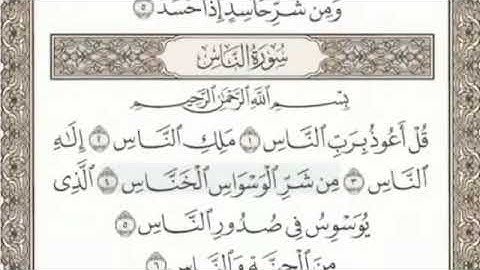 وَمِن شَرِّ حَاسِدٍ إِذَا حَسَدَ ٥
سُورَةُ النَّاسِ
بِسْمِ ٱللَّهِ ٱلرَّحْمَٰنِ ٱلرَّحِيمِ
قُلْ أَعُوذُ بِرَبِّ ٱلنَّاسِ ١ مَلِكِ ٱلنَّاسِ ٢ إِلَٰهِ
ٱلنَّاسِ ٣ مِن شَرِّ ٱلْوَسْوَاسِ ٱلْخَنَّاسِ ٤ ٱلَّذِى
يُوَسْوِسُ فِى صُدُورِ ٱلنَّاسِ ٥
مِنَ ٱلْجِنَّةِ وَٱلنَّاسِ ٦